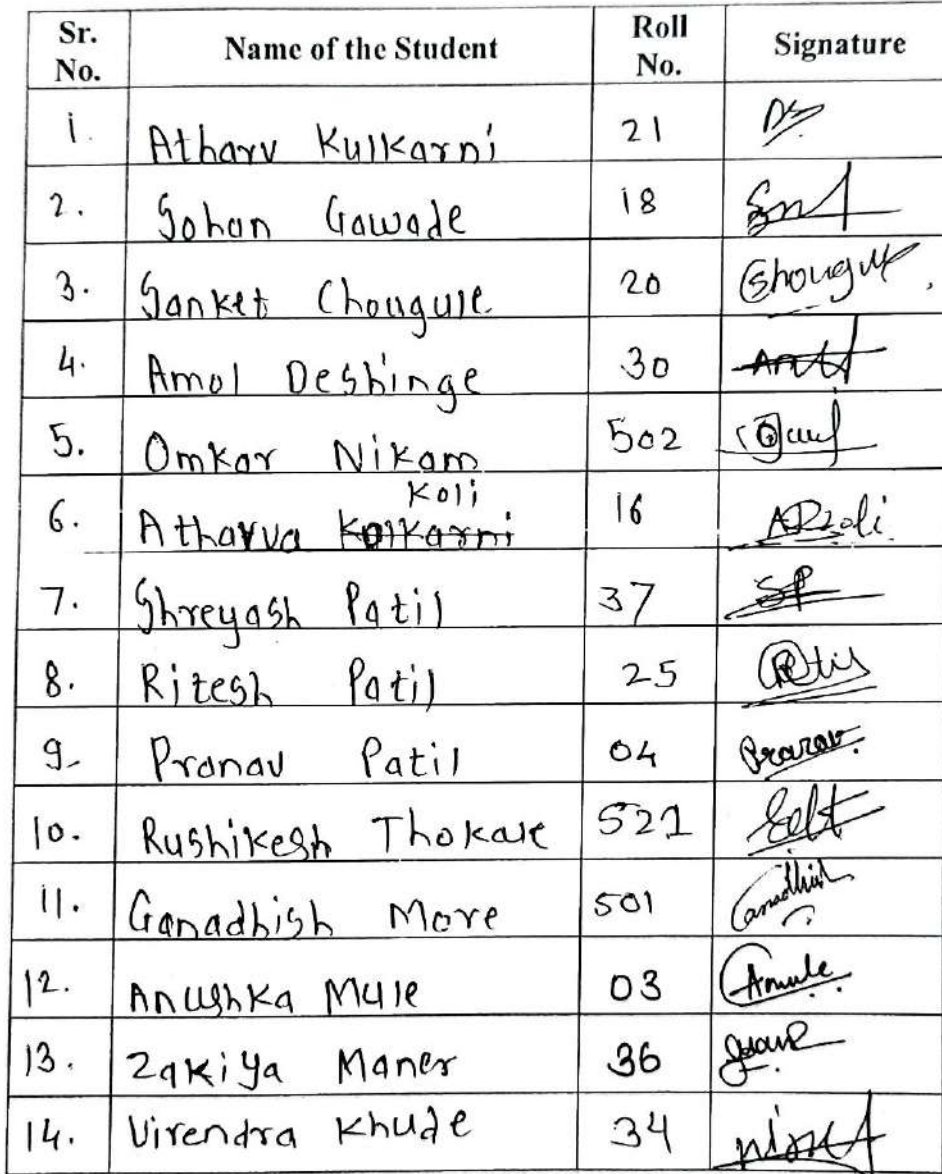 Sr. No. Name of the Student Roll No. Signature
1. Atharv Kulkarni 21
2. Sohan Gawade 18
3. Sanket Chougule 20 Chougule
4. Amol Deshinge 30
5. Omkar Nikam 502
6. Atharva Kulkarni Koli 16 APKoli
7. Shreyash Patil 37 SP
8. Ritesh Patil 25
9. Pranav Patil 04 Pranav
10. Rushikesh Thokale 521
11. Ganadhish More 501 Ganadhish
12. Anushka Mule 03 Amule
13. Zakiya Maner 36
14. Virendra Khude 34